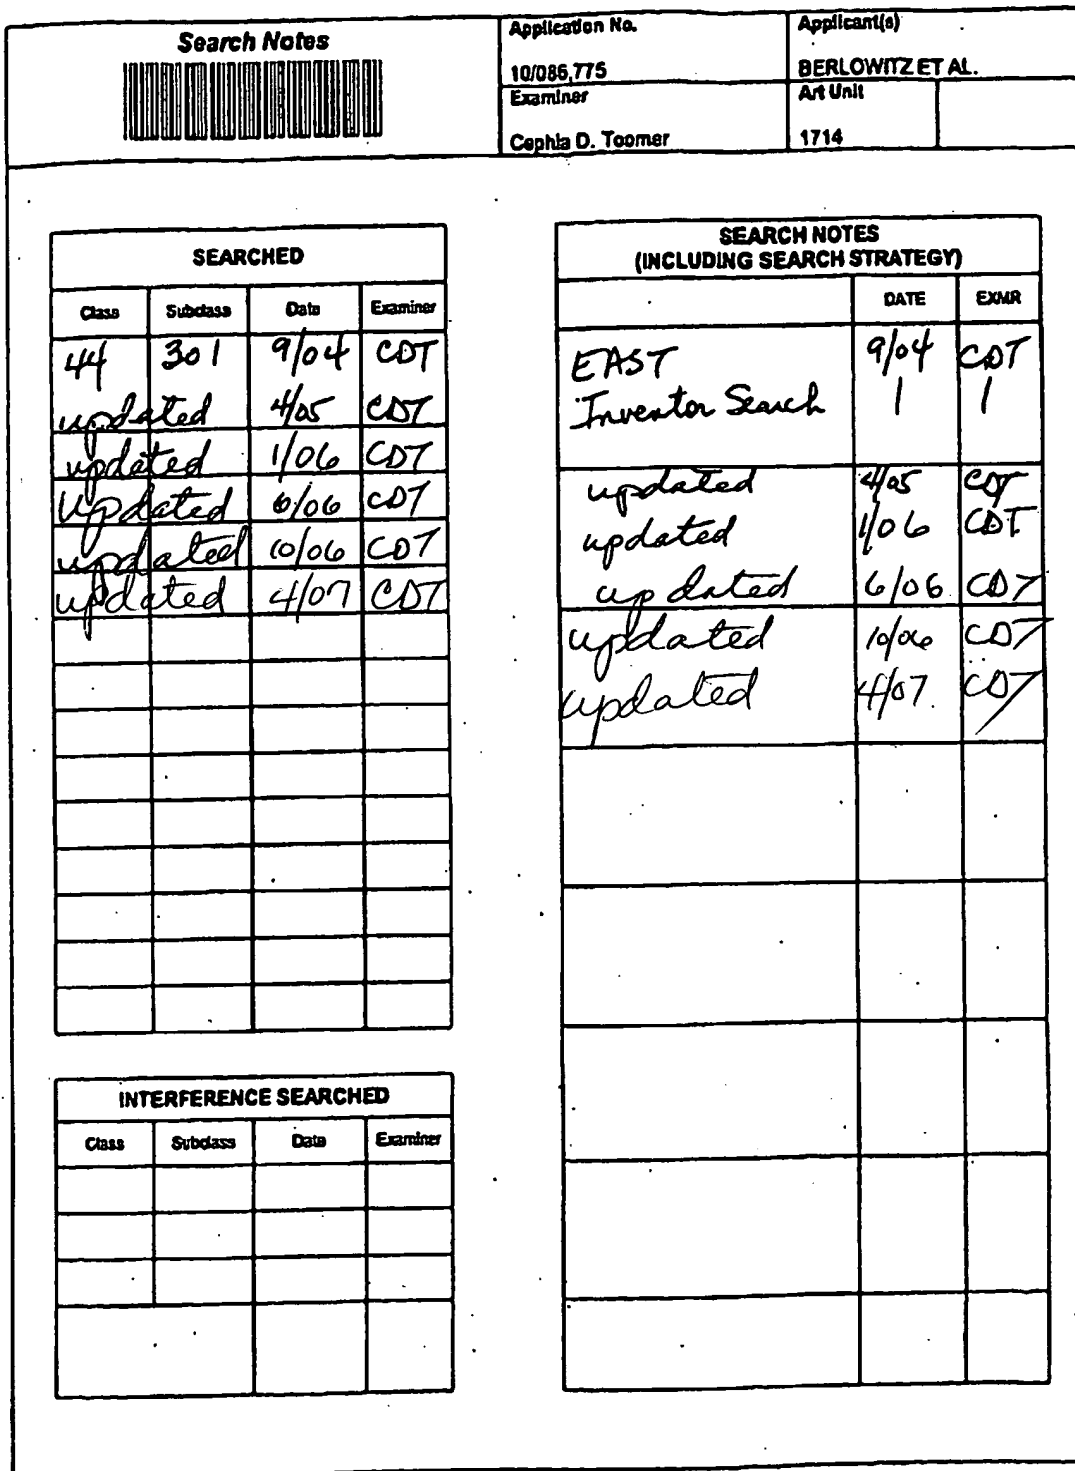 Search Notes
Application No.
Applicant(s)
10/086,775
BERLOWITZ ET AL.
Examiner
Art Unit
Cephia D. Toomer
1714
SEARCHED
Class Subclass Date Examiner
44 301 9/04 CDT
updated 4/05 CDT
updated 1/06 CDT
updated 6/06 CDT
updated 10/06 CDT
updated 4/07 CDT
INTERFERENCE SEARCHED
Class Subclass Date Examiner
SEARCH NOTES
(INCLUDING SEARCH STRATEGY)
DATE EXMR
EAST 9/04 CDT
Inventor Search | |
updated 4/05 CDT
updated 1/06 CDT
updated 6/06 CDT
updated 10/06 CDT
updated 4/07 CDT